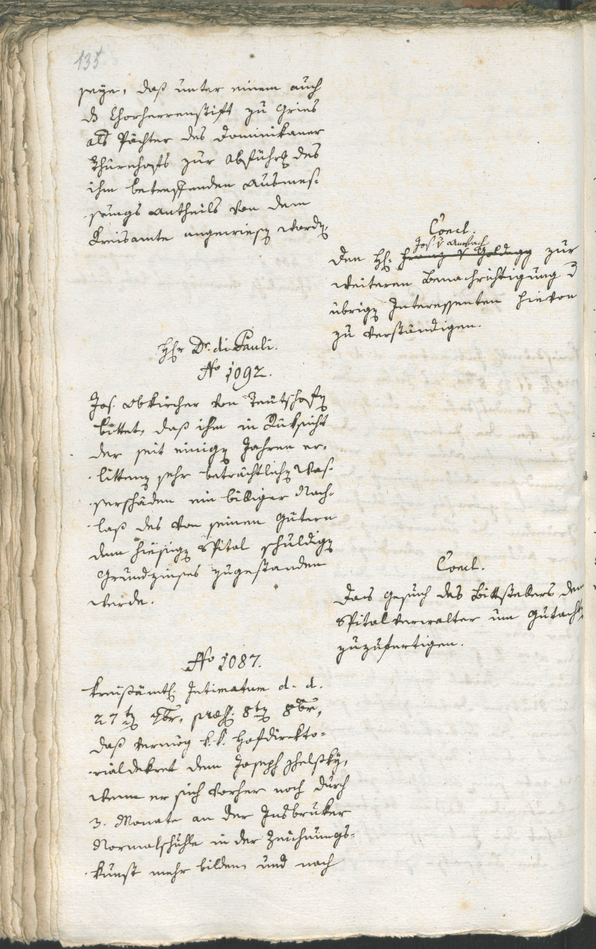 135
seye, daß unter einem auch
ds Chorherrenstift zu Gries
als Pächter des Dominikaner
Thurnhofs zur Abführg des
ihm betreffenden Ausmes-
sungs Antheils von dem
Kreisamte angewiesen worden
Concl.
Jos. v
Den H: Franz v Goldegg zur
weiteren Benachrichtigung d
übrigen Interessenten hievon
zu verständigen.
Hr Dr. di Pauli.
No 1092.
Jos. Obkircher von Teutschofen
bittet, daß ihm in Rücksicht
der seit einigen Jahren er-
littenen sehr beträchtlichen Was-
serschäden ein billiger Nach-
laß des von seinen Gütern
dem hiesigen Spital schuldigen
Grundzinses zugestanden
werde.
Concl.
Das Gesuch des Bittstellers dem
Spitalverwalter um Gutachten
zuzufertigen.
No 1087.
kreisämtl. Intimatum d. d.
27ten 7br, præs. 8ten 8br,
daß vermög k. k. Hofdirekto-
rialdekret dem Joseph
wenn er sich vorher noch durch
3. Monate an der Insbruker
Normalschule in der Zeichnungs-
kunst mehr bilden und nach